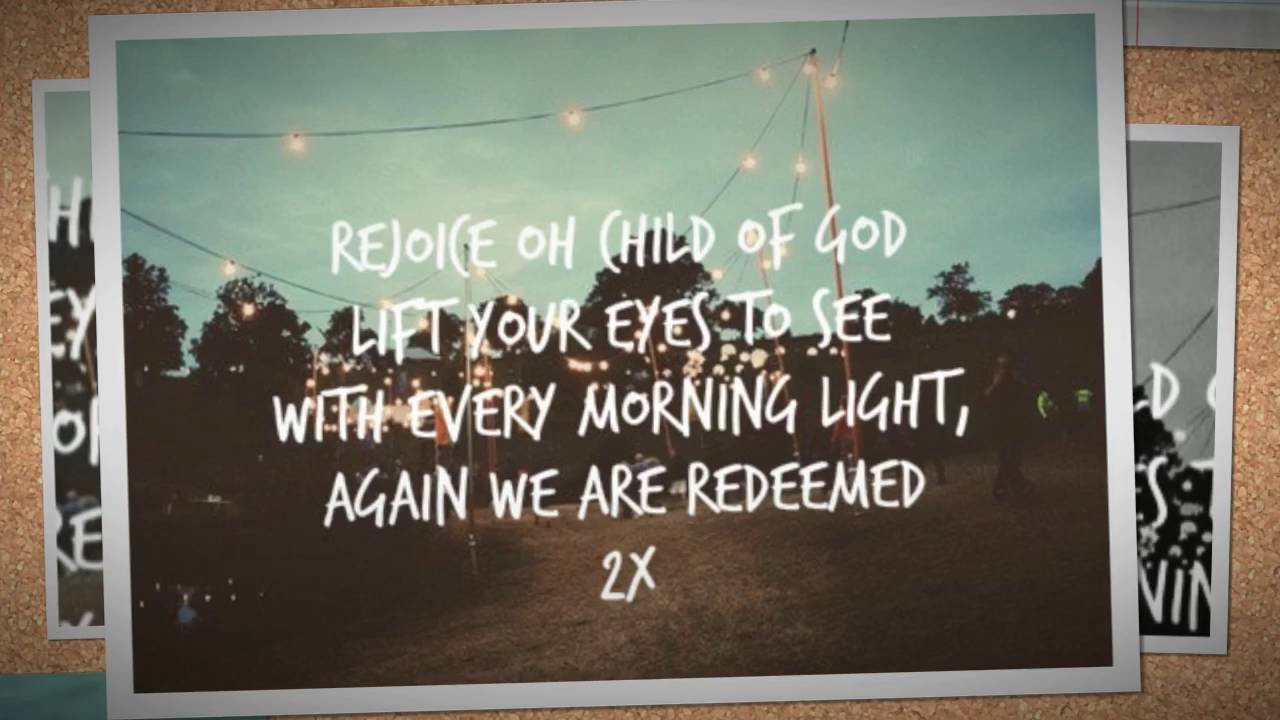 REJOICE OH CHILD OF GOD
LIFT YOUR EYES TO SEE
WITH EVERY MORNING LIGHT,
AGAIN WE ARE REDEEMED
2X